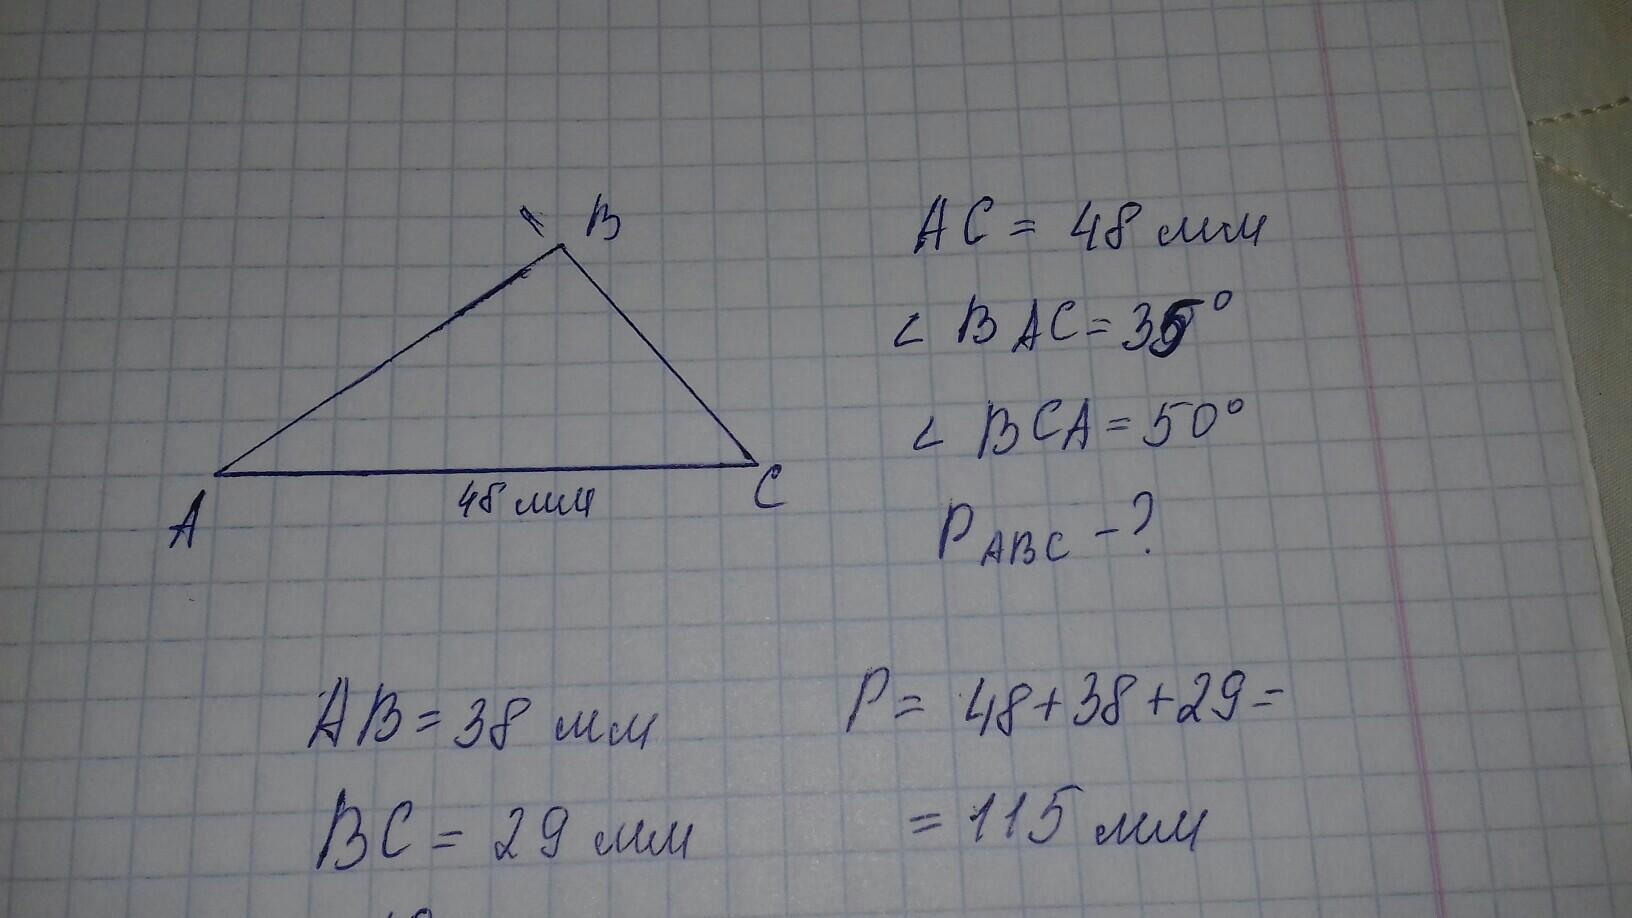 B
AC = 48 мм
∠ BAC = 35°
∠ BCA = 50°
48 мм
C
A
P ABC - ?
AB = 38 мм
P = 48 + 38 + 29 =
BC = 29 мм
= 115 мм